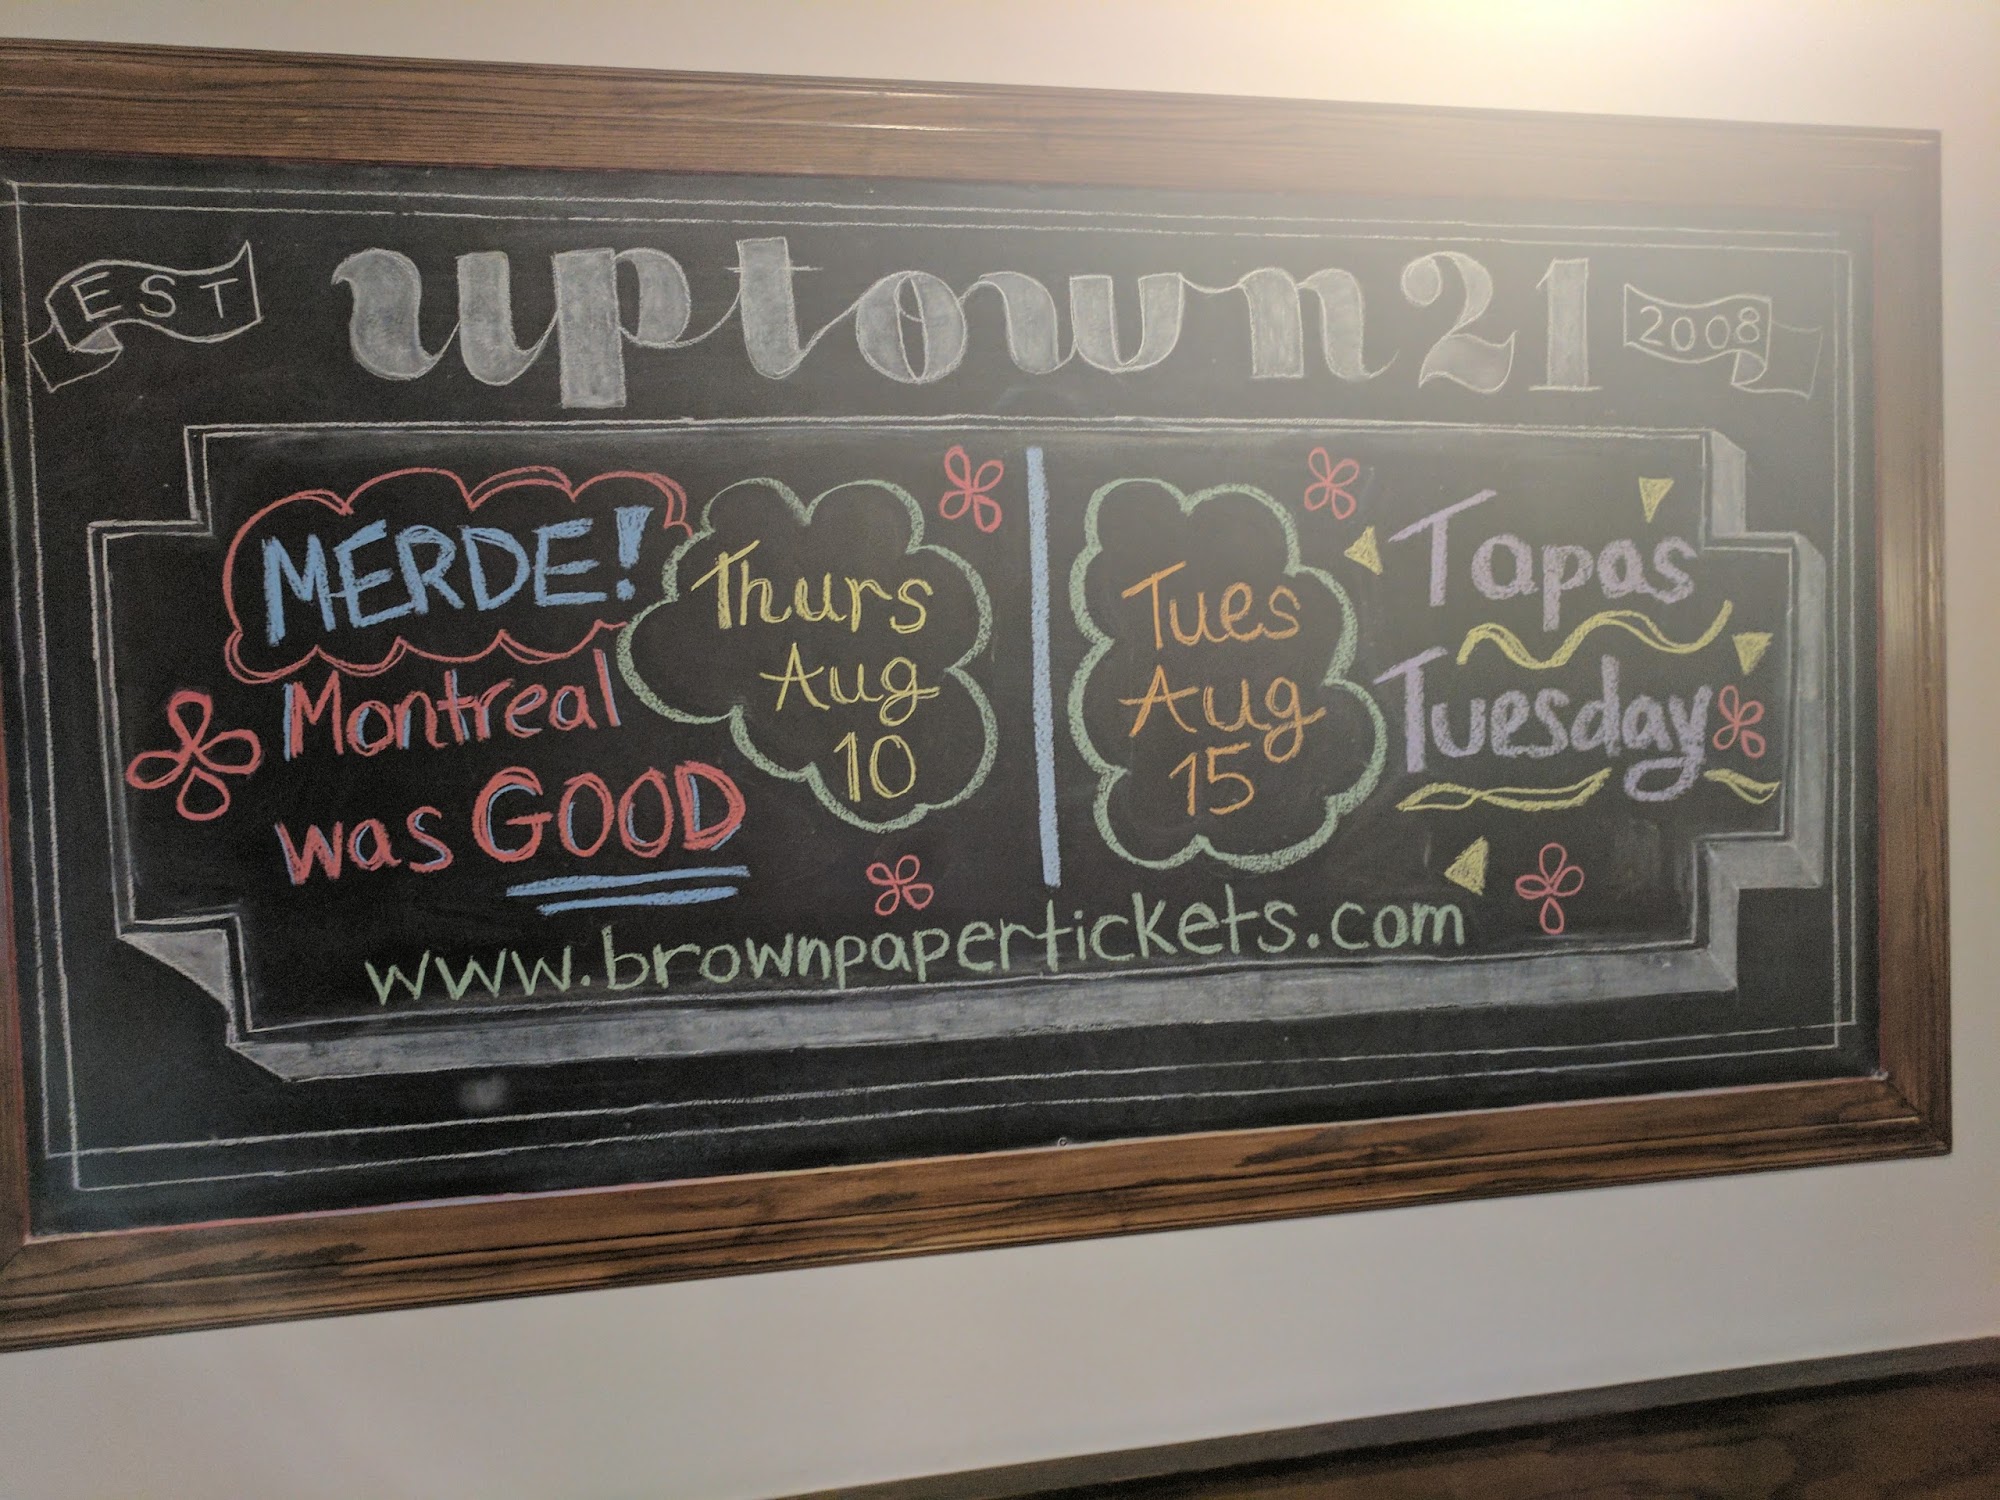 EST uptown 21 2008
MERDE!
Montreal
was GOOD
Thurs
Aug
10
Tues
Aug
15
Tapas
Tuesday
www.brownpapertickets.com